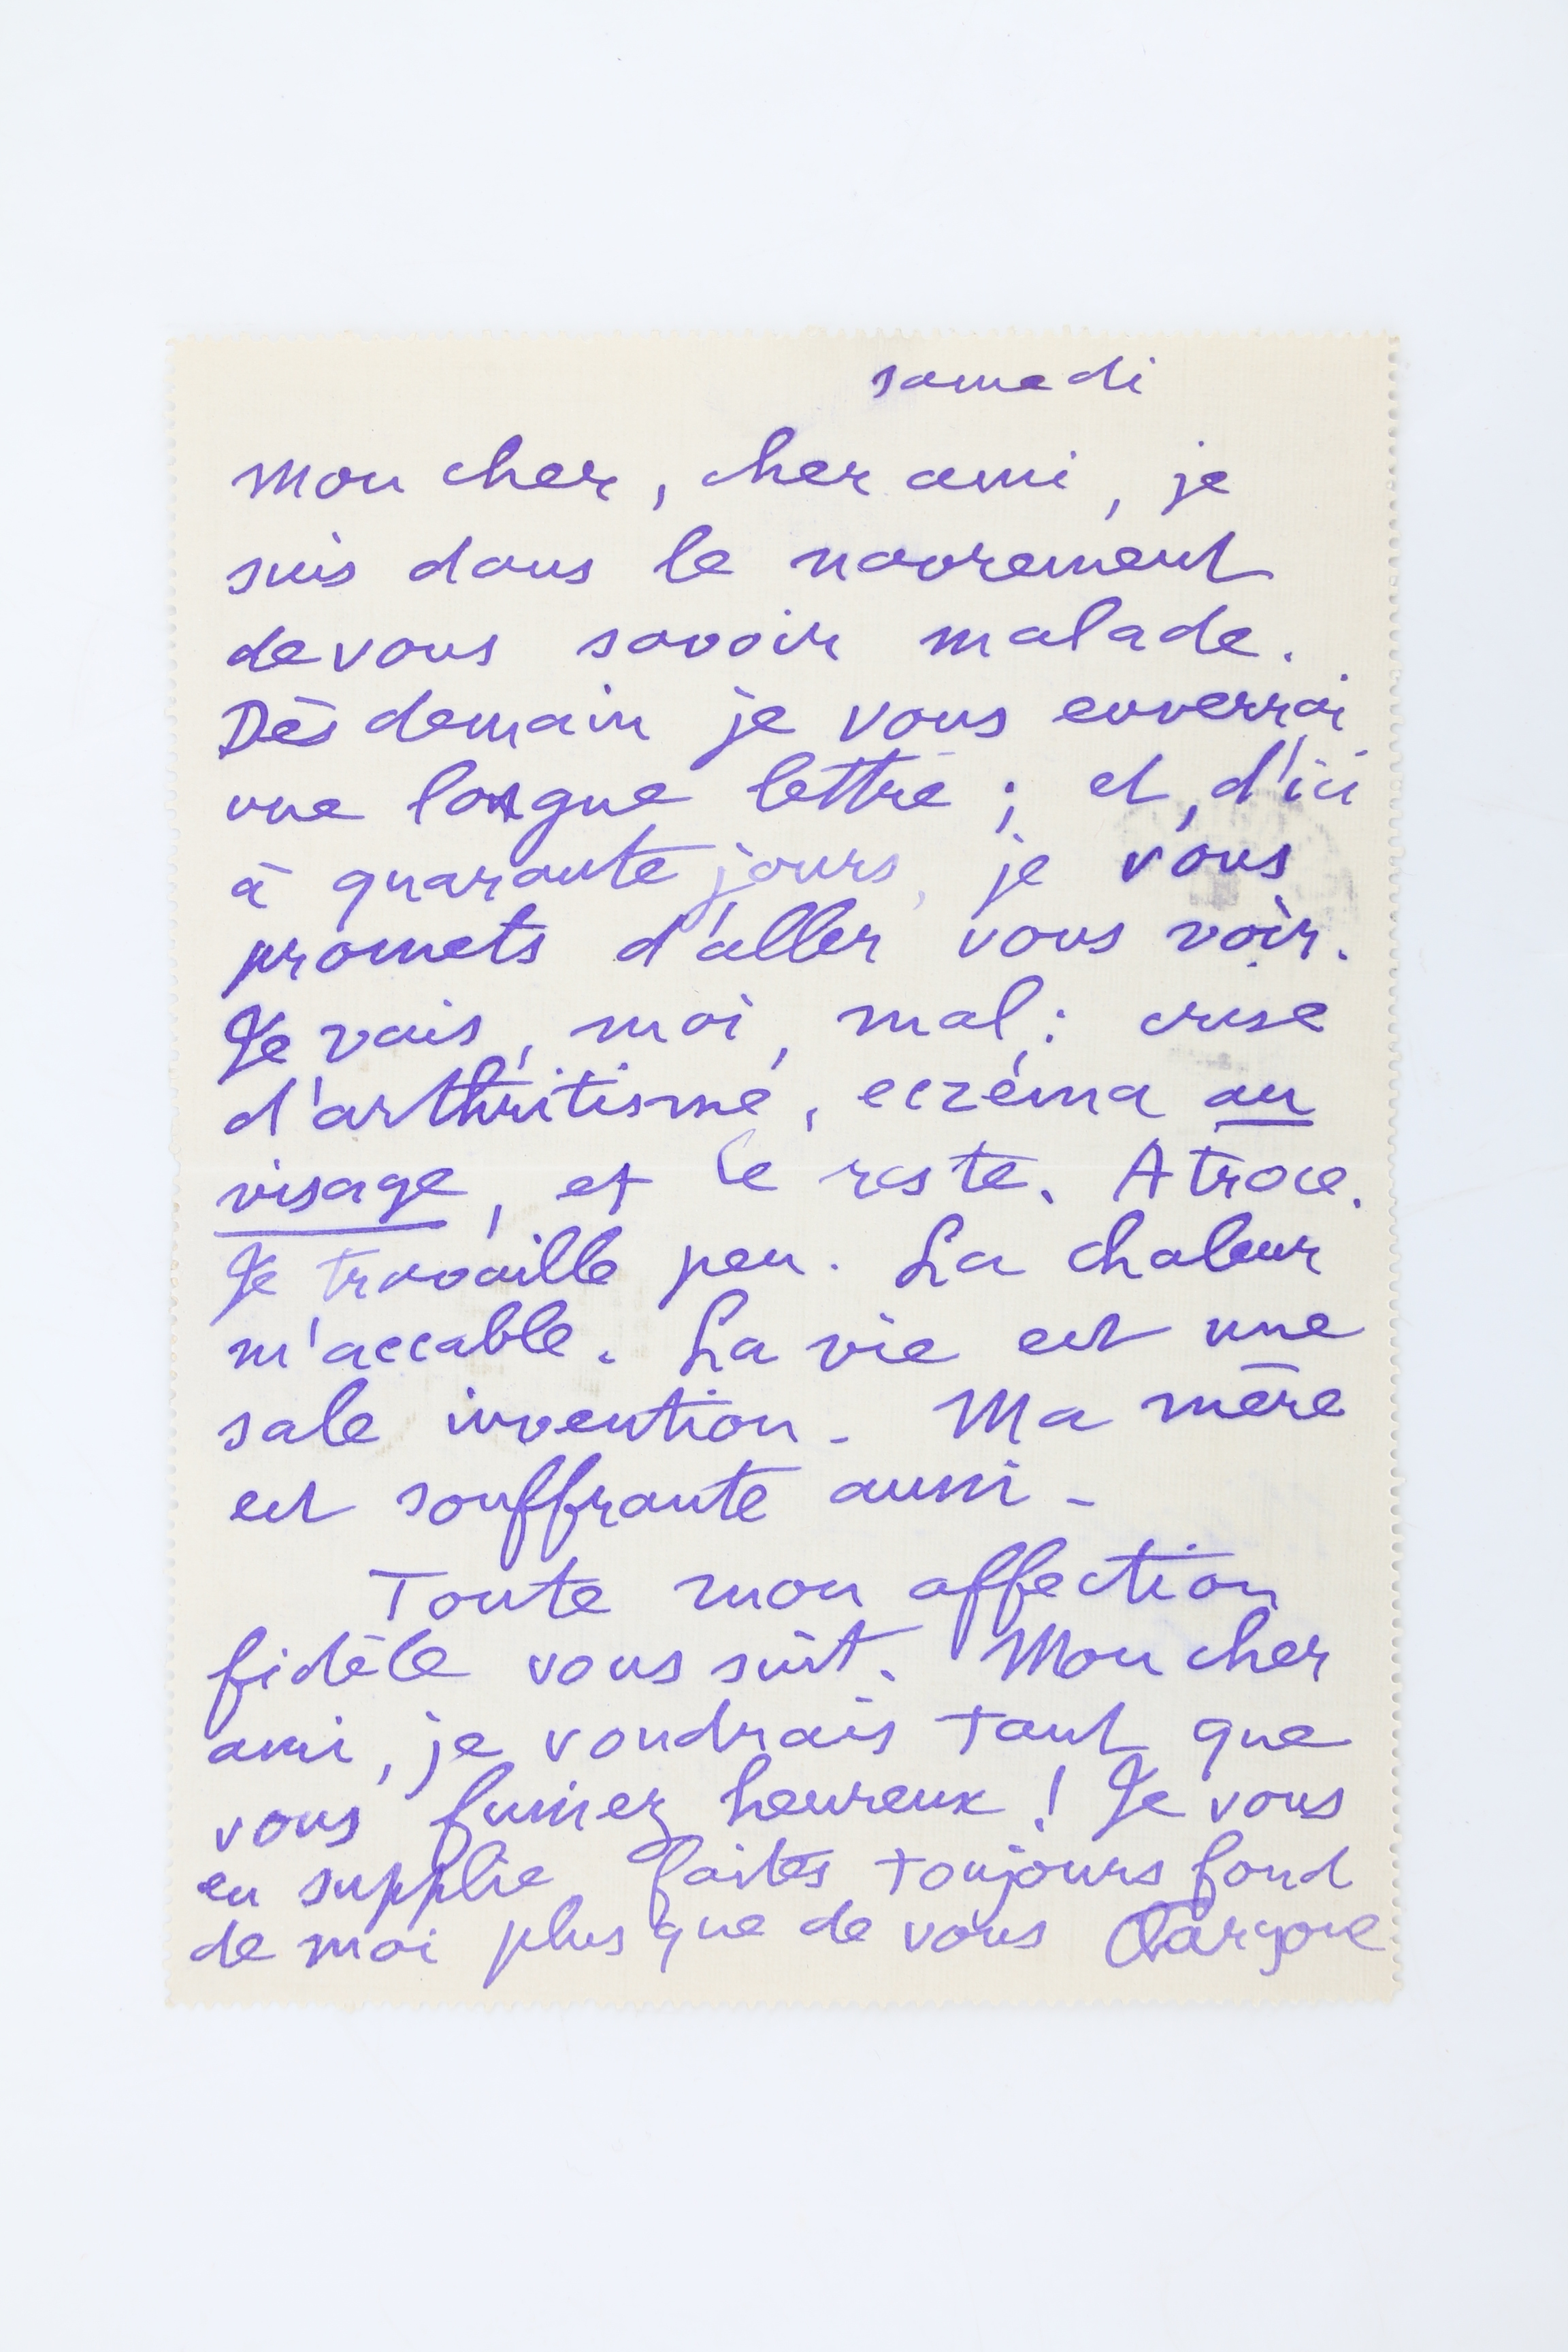 samedi
Mon cher, cher ami, je
suis dans le navrement
de vous savoir malade.
Dès demain je vous enverrai
une longue lettre ; et, d'ici
à quarante jours, je vous
promets d'aller vous voir.
Je vais, moi, mal : crise
d'arthritisme, eczéma au
visage, et le reste. Atroce.
Je travaille peu. La chaleur
m'accable. La vie est une
sale invention - Ma mère
est souffrante aussi -
Toute mon affection
fidèle vous suit. Mon cher
ami, je voudrais tant que
vous fussiez heureux ! Je vous
en supplie faites toujours fond
de moi plus que de vous